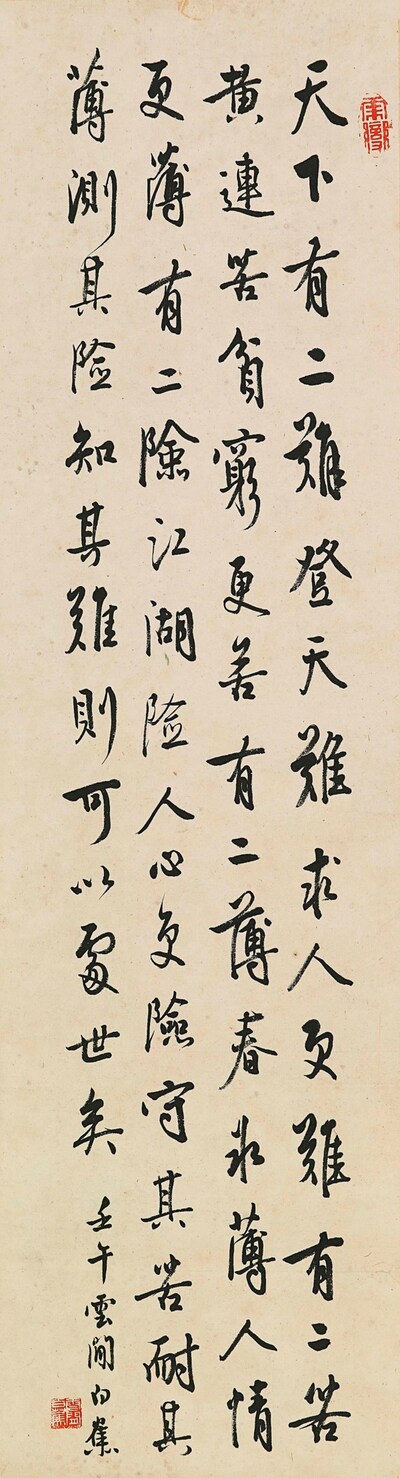 天下有二難登天難求人更難有二苦
黃連苦貧窮更苦有二薄春冰薄人情
更薄有二險江湖險人心更險守其苦耐其
薄測其險知其難則可以處世矣
壬午雲間白蕉